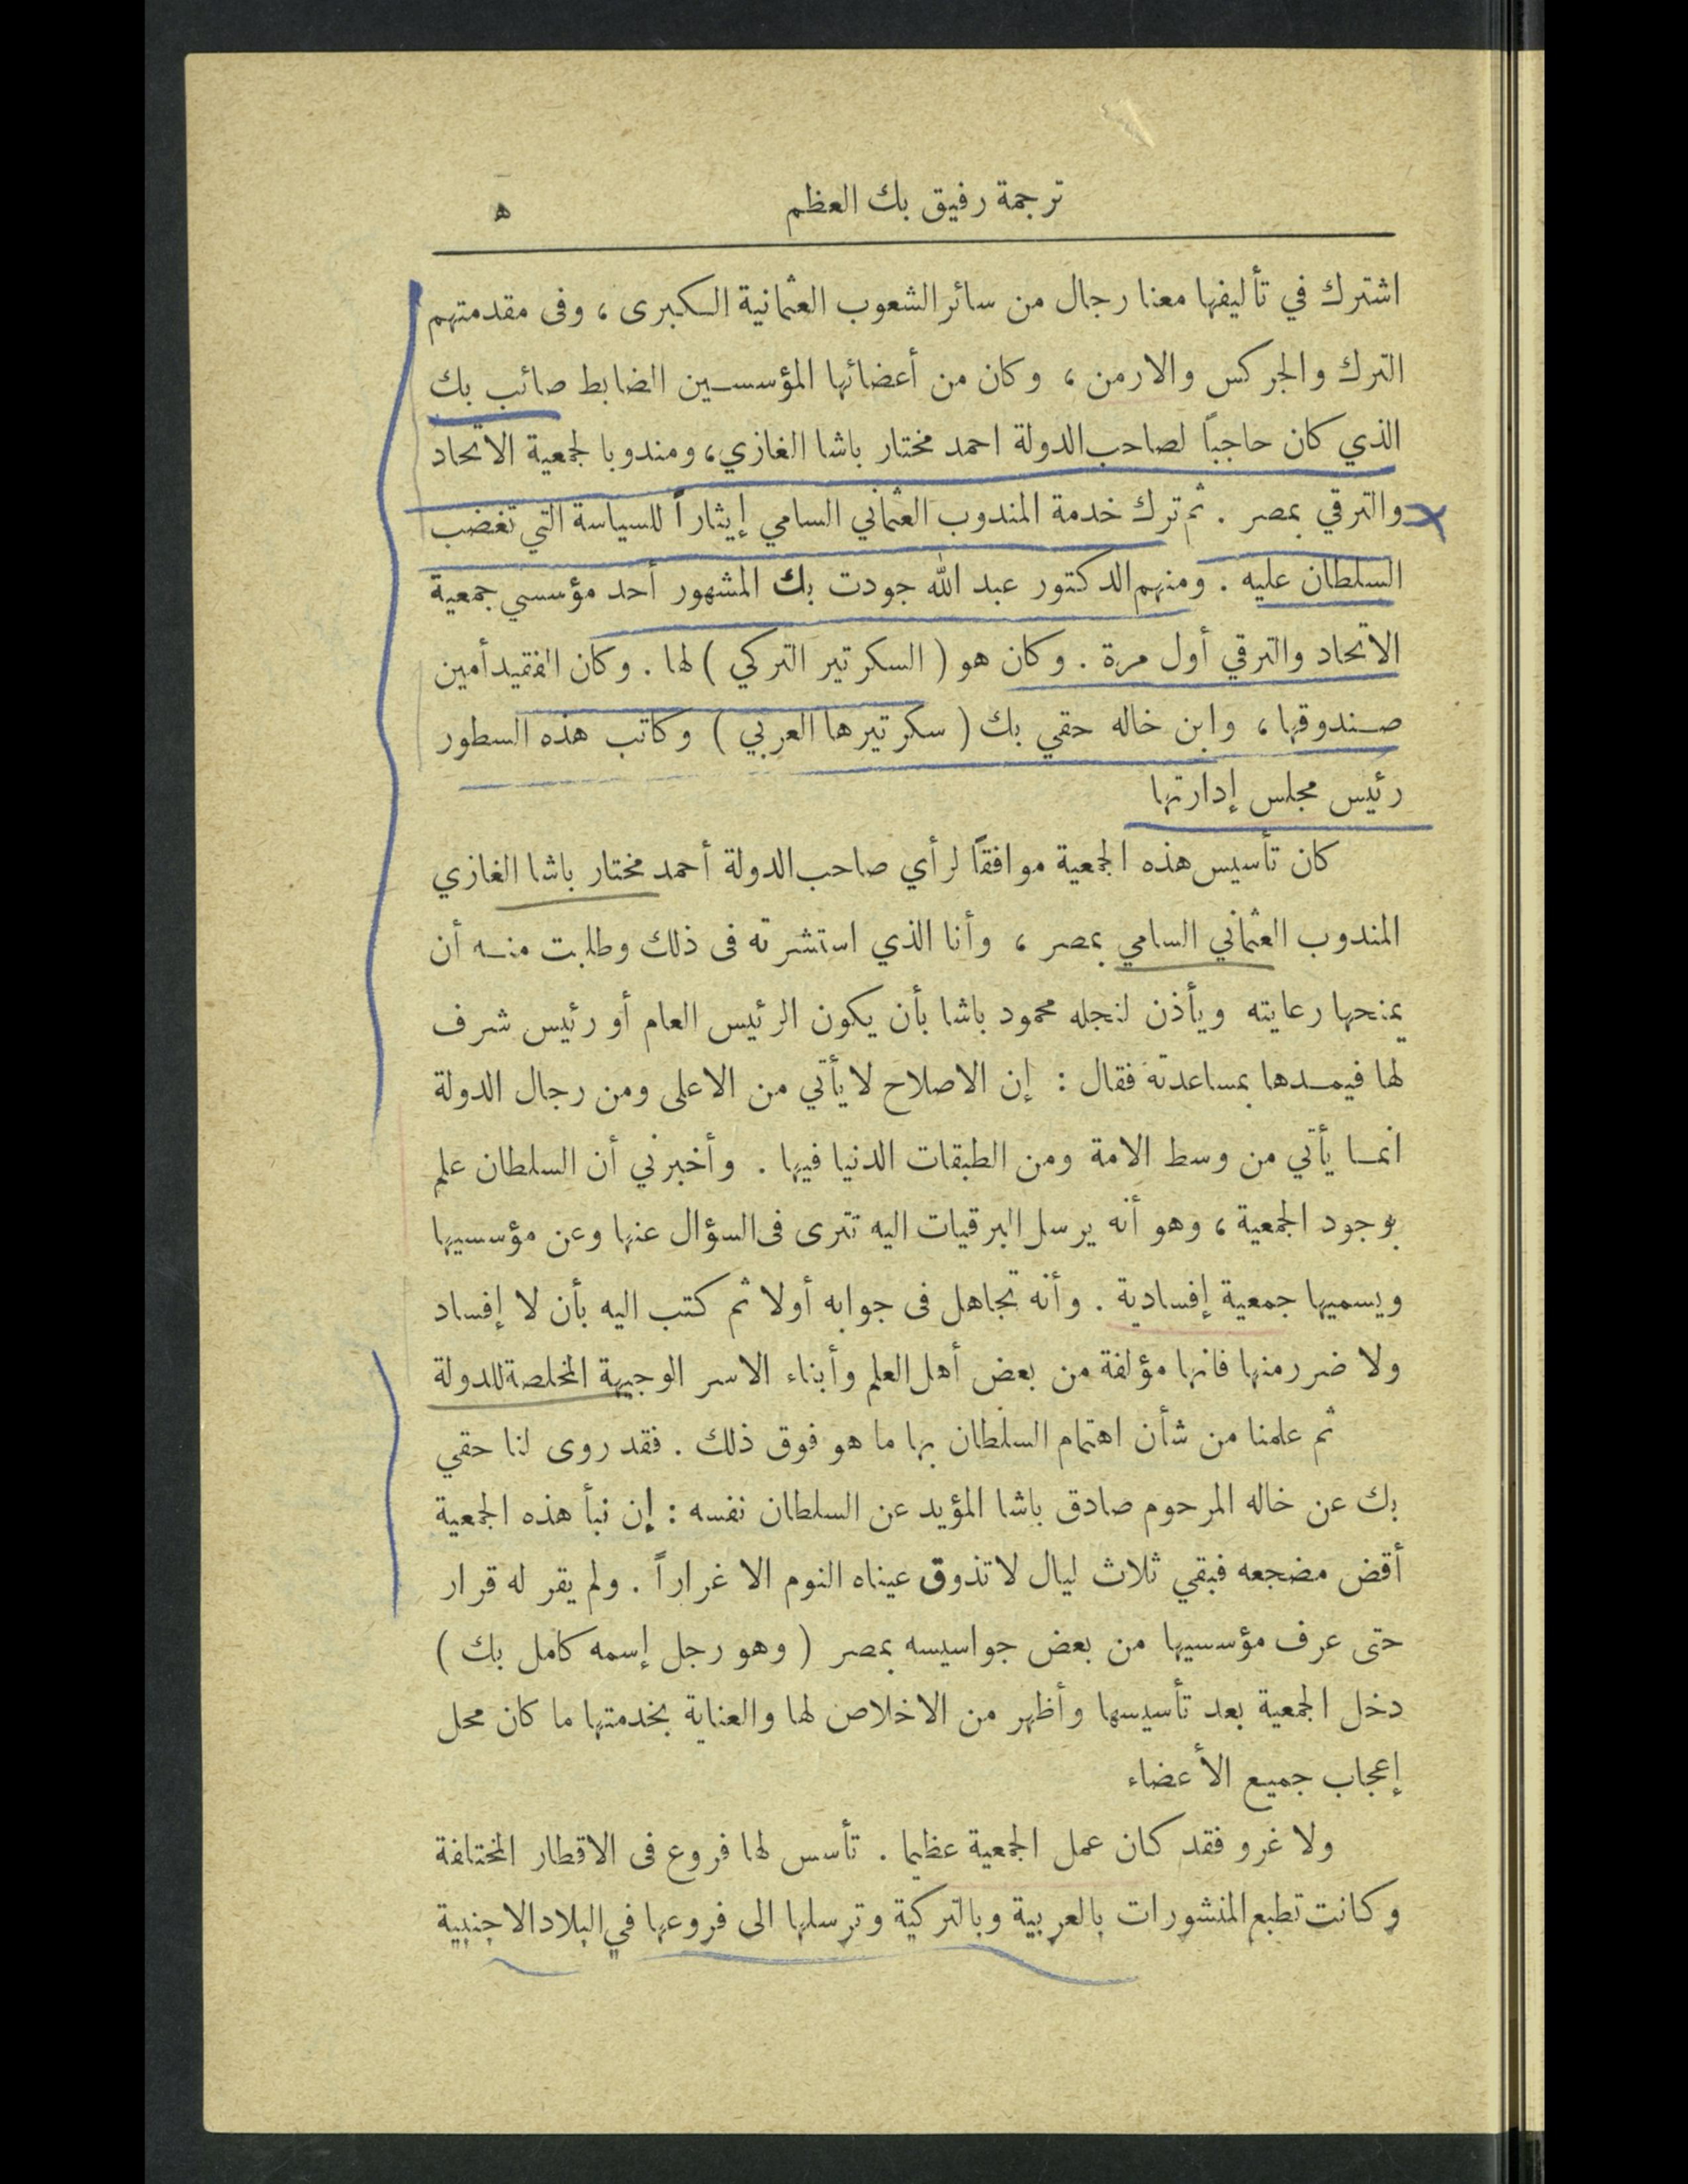 ترجمة رفيق بك العظم ه
اشترك في تأليفها معنا رجال من سائر الشعوب العثمانية الكبرى ، وفى مقدمتهم
الترك والجركس والارمن ، وكان من أعضائها المؤسسين الضابط صائب بك
الذي كان حاجباً لصاحب الدولة احمد مختار باشا الغازي، ومندوبا لجمعية الاتحاد
والترقي بمصر . ثم ترك خدمة المندوب العثماني السامي إيثاراً للسياسة التي تغضب
السلطان عليه . ومنهم الدكتور عبد الله جودت بك المشهور أحد مؤسسي جمعية
الاتحاد والترقي أول مرة . وكان هو ( السكرتير التركي ) لها . وكان الفقيد أمين
صندوقها ، وابن خاله حقي بك ( سكرتيرها العربي ) وكاتب هذه السطور
رئيس مجلس إدارتها
كان تأسيس هذه الجمعية موافقاً لرأي صاحب الدولة أحمد مختار باشا الغازي
المندوب العثماني السامي بمصر ، وأنا الذي استشرته فى ذلك وطلبت منه أن
يمنحها رعايته ويأذن لنجله محمود باشا بأن يكون الرئيس العام أو رئيس شرف
لها فيمدها بمساعدته فقال : إن الاصلاح لا يأتي من الاعلى ومن رجال الدولة
انما يأتي من وسط الامة ومن الطبقات الدنيا فيها . وأخبرني أن السلطان علم
بوجود الجمعية ، وهو أنه يرسل البرقيات اليه تترى فى السؤال عنها وعن مؤسسيها
ويسميها جمعية إفسادية . وأنه تجاهل فى جوابه أولا ثم كتب اليه بأن لا إفساد
ولا ضرر منها فانها مؤلفة من بعض أهل العلم وأبناء الاسر الوجيهة المخلصة للدولة
ثم علمنا من شأن اهتمام السلطان بها ما هو فوق ذلك . فقد روى لنا حقي
بك عن خاله المرحوم صادق باشا المؤيد عن السلطان نفسه : إن نبأ هذه الجمعية
أقض مضجعه فبقي ثلاث ليال لا تذوق عيناه النوم الا غراراً . ولم يقر له قرار
حتى عرف مؤسسيها من بعض جواسيسه بمصر ( وهو رجل إسمه كامل بك )
دخل الجمعية بعد تأسيسها وأظهر من الاخلاص لها والعناية بخدمتها ما كان محل
إعجاب جميع الأعضاء
ولا غرو فقد كان عمل الجمعية عظيما . تأسس لها فروع فى الاقطار المختلفة
وكانت تطبع المنشورات بالعربية وبالتركية وترسلها الى فروعها في البلاد الاجنبية